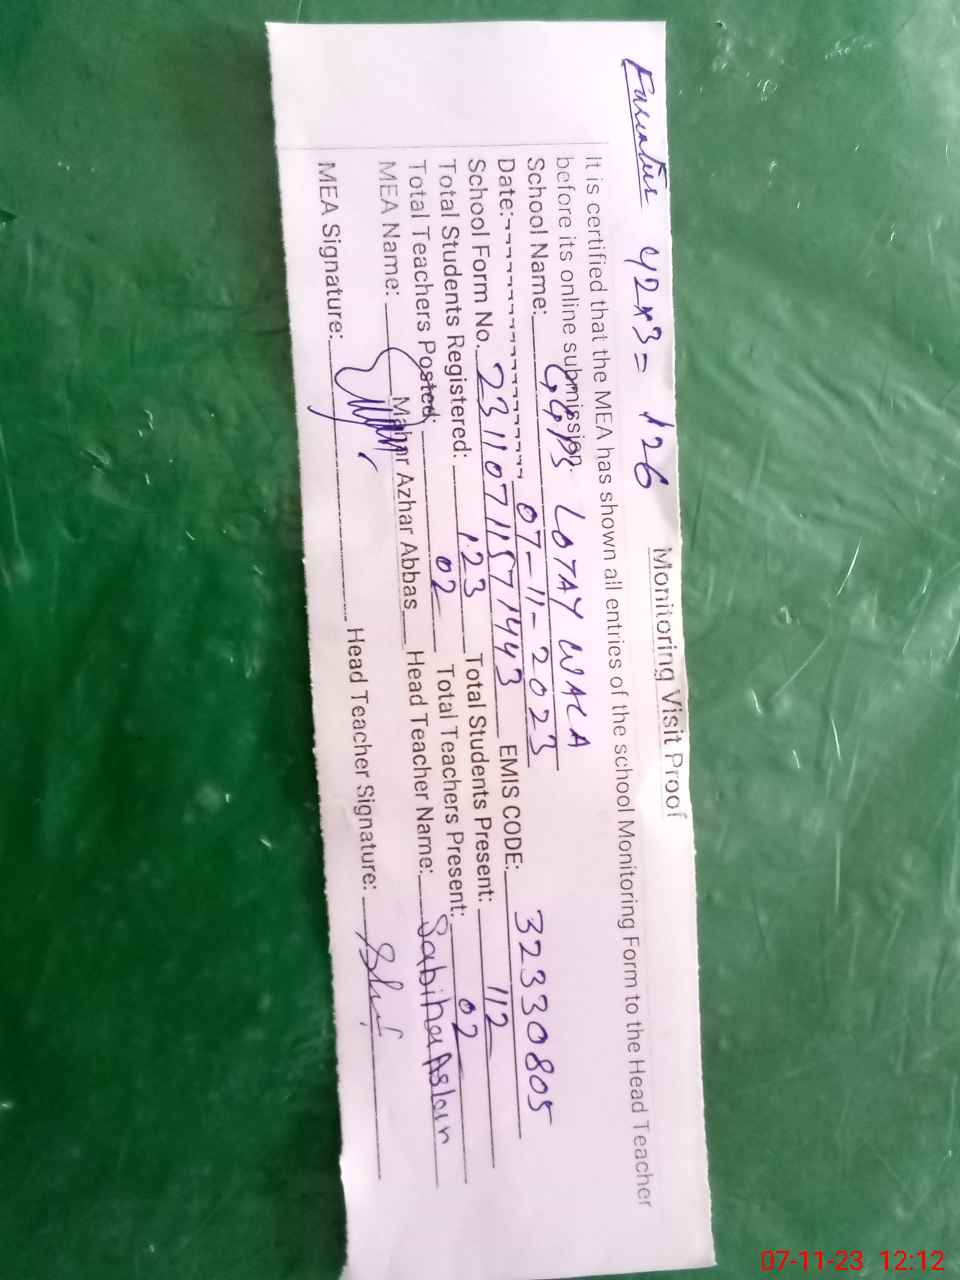 42x3 = 126
Monitoring Visit Proof
It is certified that the MEA has shown all entries of the school Monitoring Form to the Head Teacher
before its online submission.
School Name: GGPS LOTAY WALA
Date: 07-11-2023 EMIS CODE: 32330805
School Form No. 23110711571443 Total Students Present: 112
Total Students Registered: 123 Total Teachers Present: 02
Total Teachers Posted: 02 Head Teacher Name: Sabiha Aslam
MEA Name: Mahr Azhar Abbas Head Teacher Signature:
MEA Signature:
07-11-23 12:12